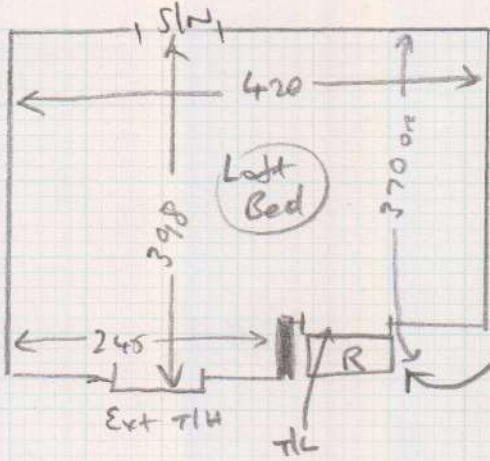 S/N
420
Loft
Bed
398
370
245
R
Ext T/H
T/L